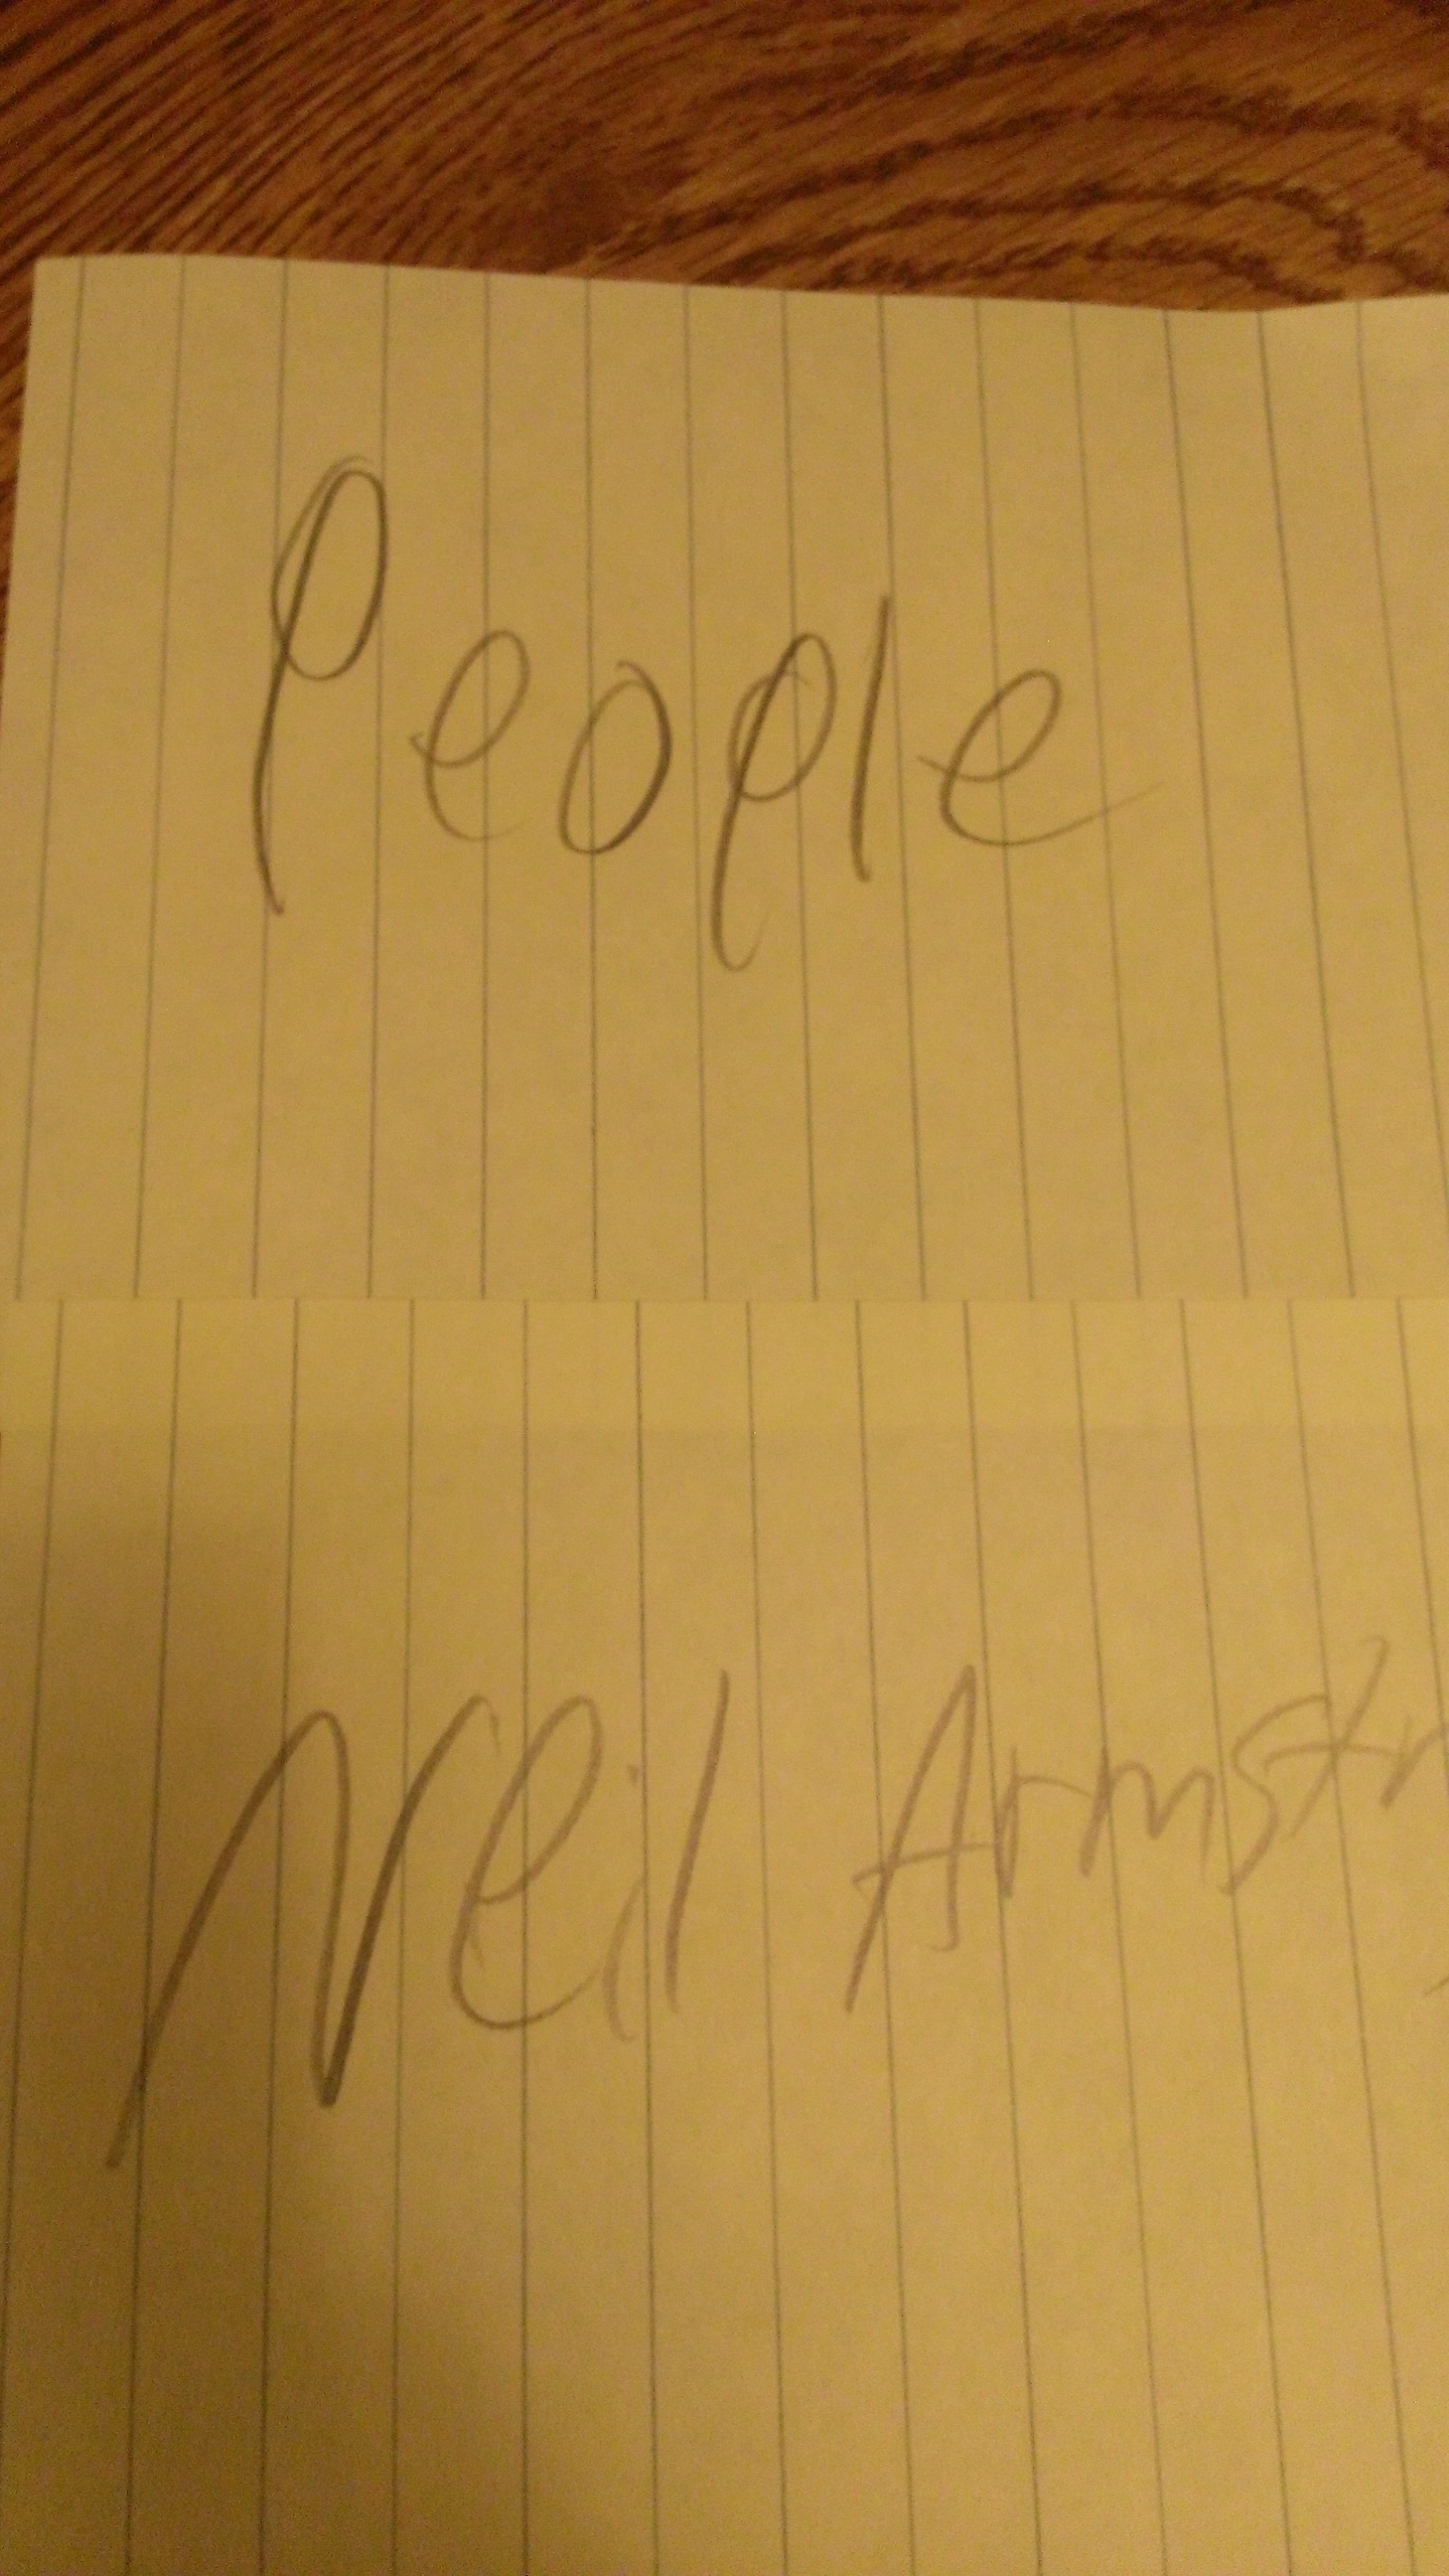 People
Neil Armstr